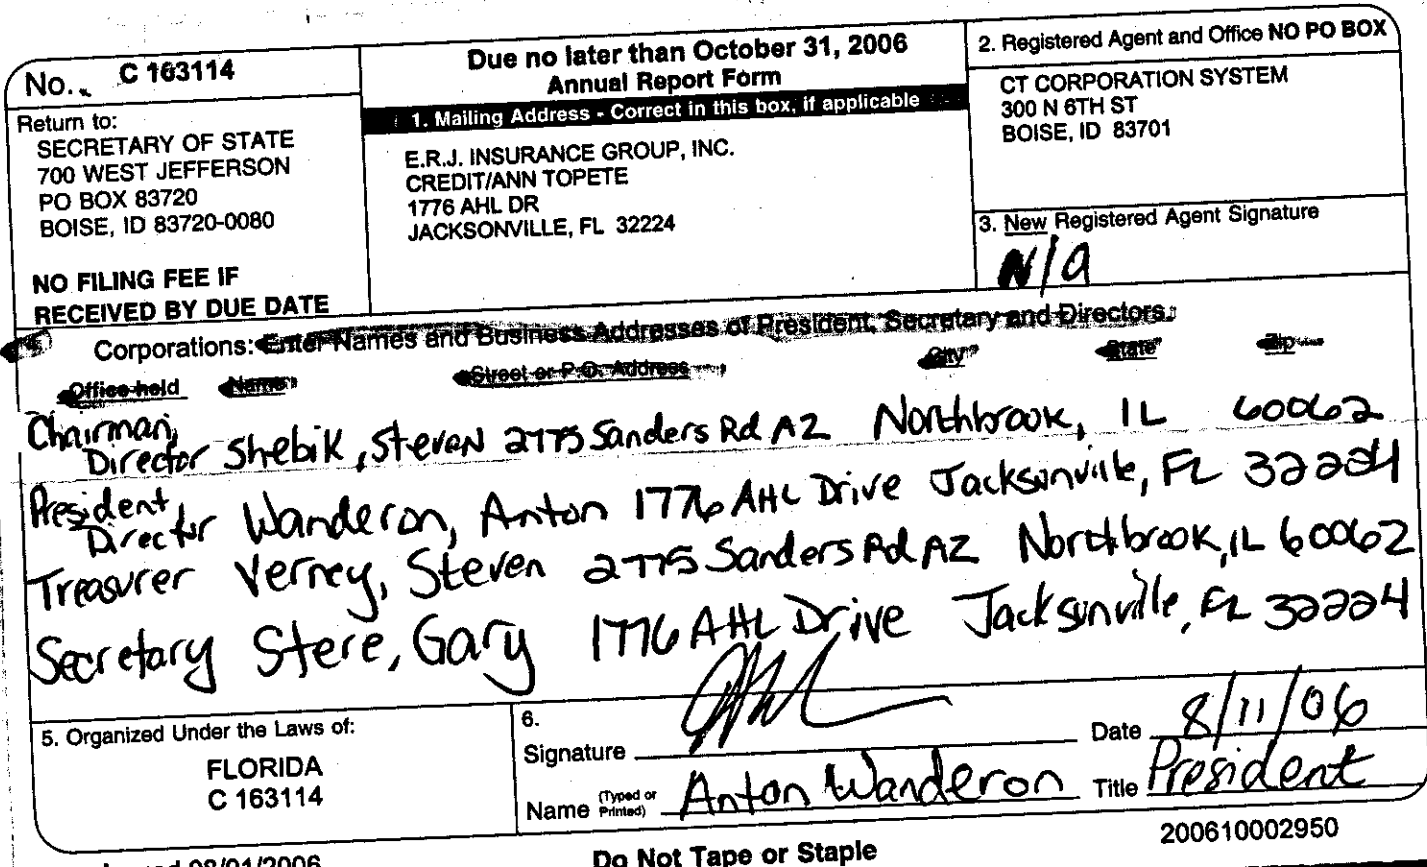 No. C 163114
Return to:
SECRETARY OF STATE
700 WEST JEFFERSON
PO BOX 83720
BOISE, ID 83720-0080
NO FILING FEE IF
RECEIVED BY DUE DATE
Due no later than October 31, 2006
Annual Report Form
1. Mailing Address - Correct in this box, if applicable
E.R.J. INSURANCE GROUP, INC.
CREDIT/ANN TOPETE
1776 AHL DR
JACKSONVILLE, FL 32224
2. Registered Agent and Office NO PO BOX
CT CORPORATION SYSTEM
300 N 6TH ST
BOISE, ID 83701
3. New Registered Agent Signature
N/a
Corporations: Enter Names and Business Addresses of President, Secretary and Directors.
Office held Name Street or P.O. Address City State Zip
Chairman,
Director Shebik, Steven 2775 Sanders Rd A2 Northbrook, IL 60062
President,
Director Wanderon, Anton 1776 AHL Drive Jacksonville, FL 32224
Treasurer Verney, Steven 2775 Sanders Rd A2 Northbrook, IL 60062
Secretary Stere, Gary 1776 AHL Drive Jacksonville, FL 32224
5. Organized Under the Laws of:
FLORIDA
C 163114
6.
Signature Date 8/11/06
Name (Typed or Printed) Anton Wanderon Title President
08/01/2006
Do Not Tape or Staple
200610002950